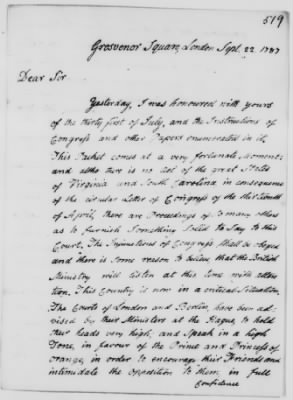 519
Grosvenor Square, London Sept. 22 1787
Dear Sir
Yesterday, I was honoured with yours
of the thirty first of July, and the Instructions of
Congress and other Papers enumerated in it,
This Packet comes at a very fortunate Moment:
and altho there is no Act of the great States
of Virginia and South Carolina in consequence
of the circular Letter of Congress of the thirteenth
of April, there are Proceedings of so many others
as to furnish Something solid to Say to this
Court. The Injunctions of Congress shall be obeyed
and there is Some reason to believe that the British
Ministry will listen at this time with atten
tion. This Country is now in a critical Situation.
The Courts of London and Berlin, have been ad
vised by their Ministers at the Hague, to hold
their heads very high, and Speak in a high
Tone, in favour of the Prince and Princess of
orange, in order to encourage their Friends and
intimidate the opposition to them, in full
Confidence